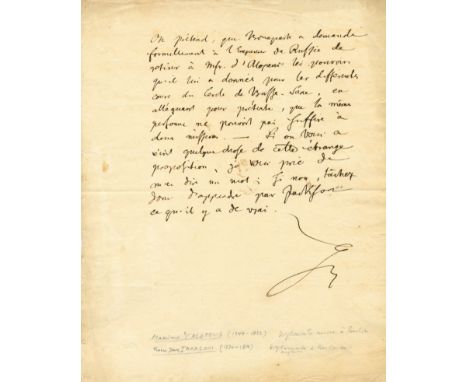 On prétend, que Bonaparte a demandé
formellement à l'Empereur de Russie de
retirer à Mr. d'Alopeus les pouvoirs
qu'il lui a donnés pour les differentes
cours du Cercle de Basse-Saxe, en
alléguant pour prétexte, que la même
personne ne pouvoit pas suffire à
deux missions. — Si on vous a
écrit quelque chose de cette étrange
proposition, je vous prie de
m'en dire un mot; si non, tachez
donc d'apprendre par Jackson
ce qu'il y a de vrai.
Maxime d'ALOPEUS diplomate russe à Berlin
JACKSON diplomate